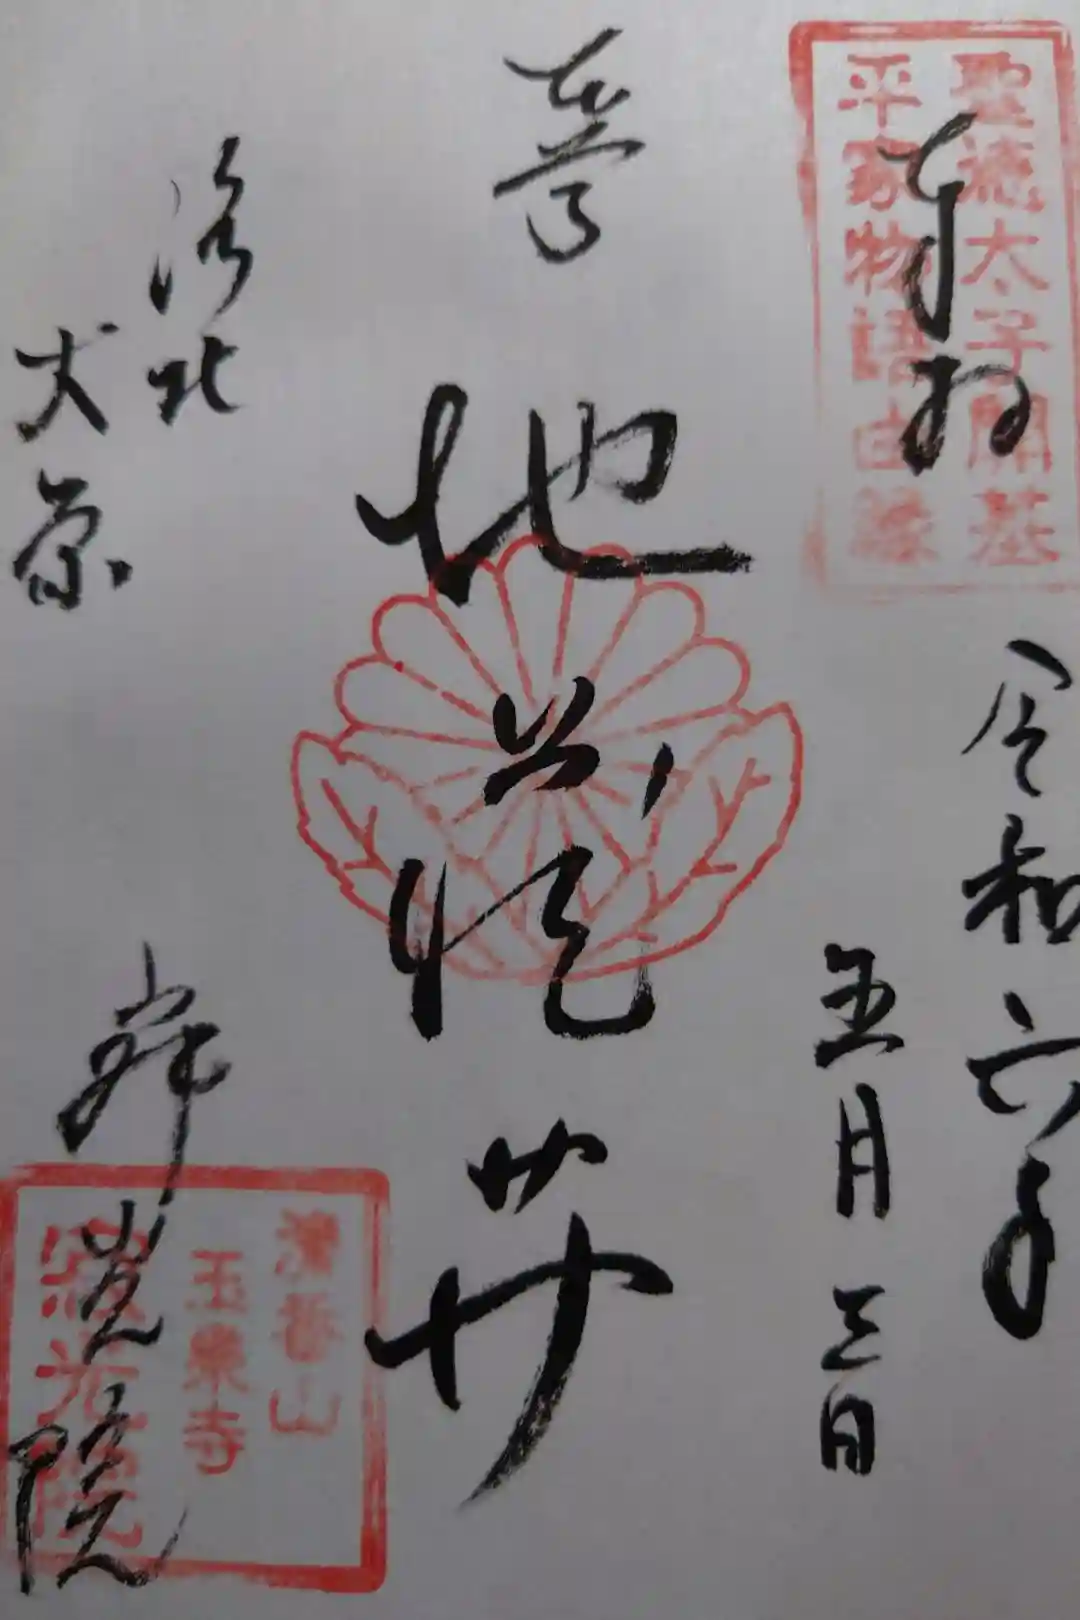 聖徳太子開基
平家物語由縁
奉拝
令和六年
五月三日
地蔵𦬇
洛北
大原
寂光院
清香山
玉泉寺
寂光院